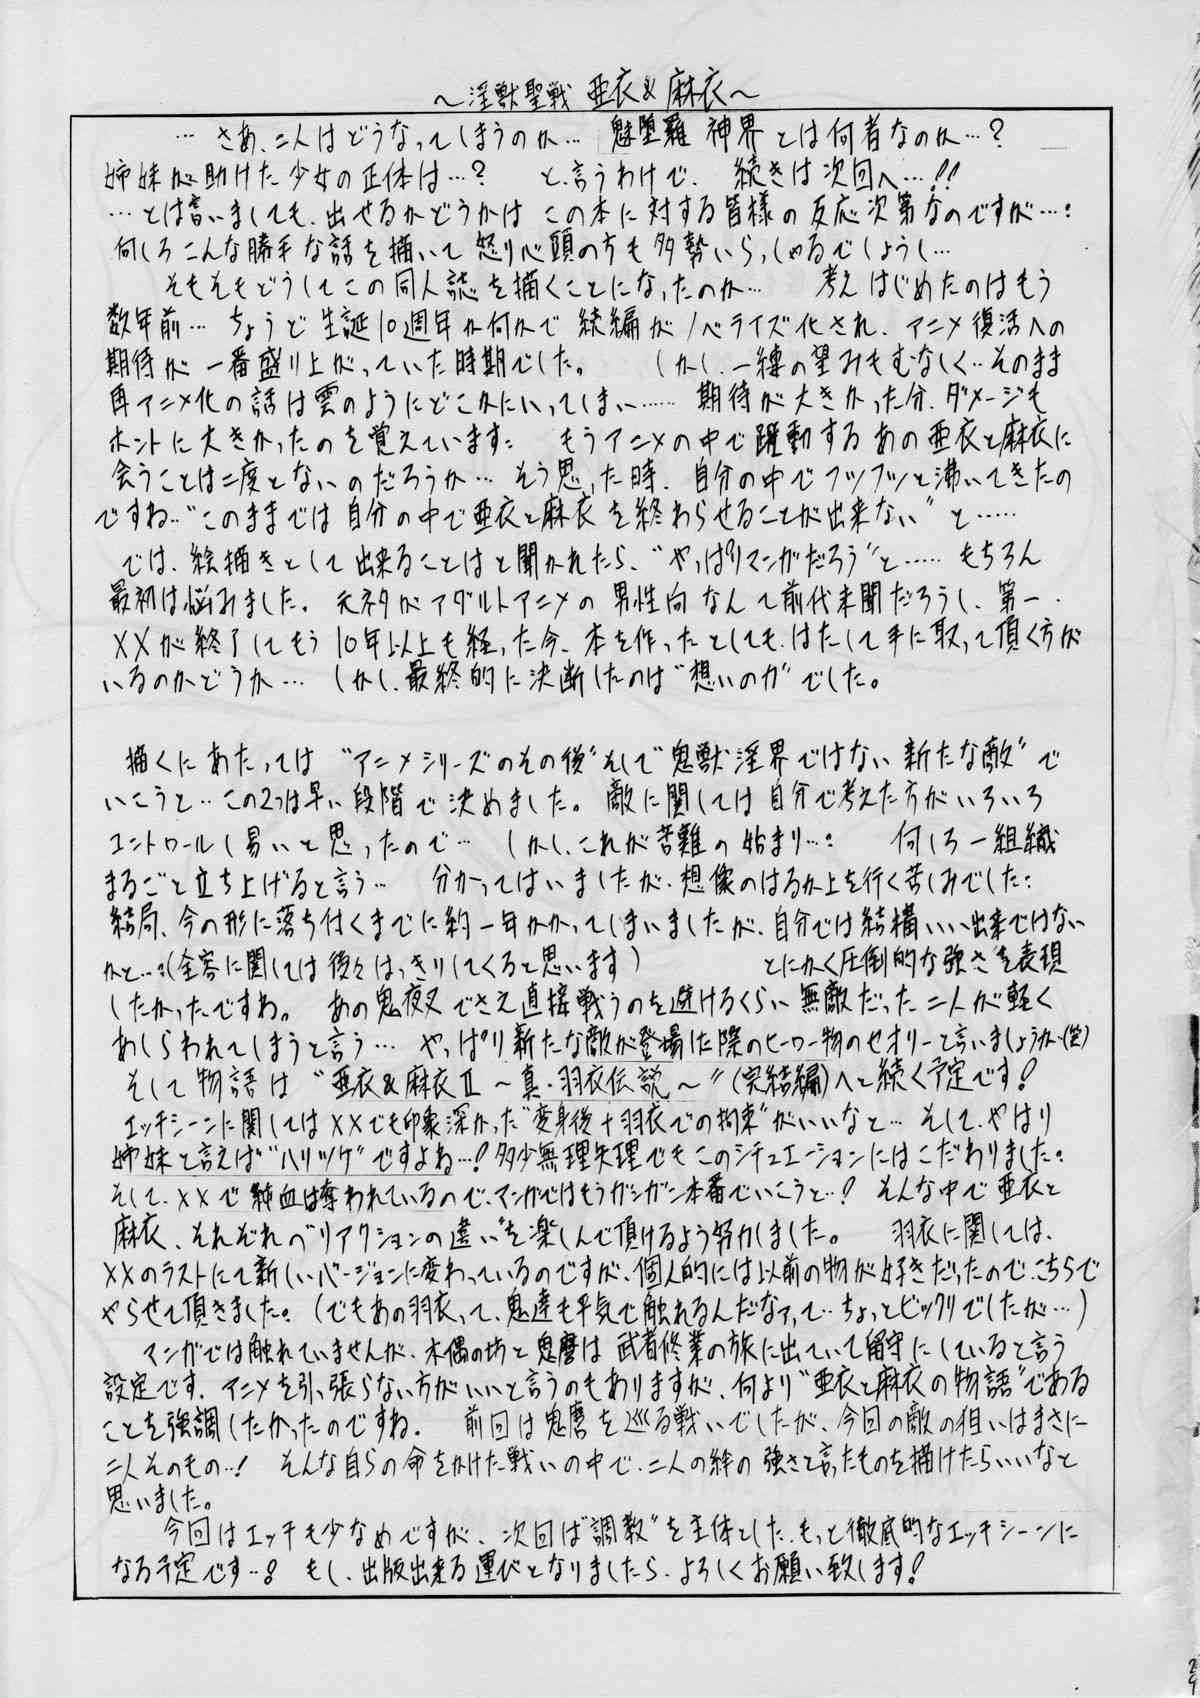 ～淫獣聖戦 亜衣&麻衣～
…さあ、二人はどうなってしまうのか… 魅堕羅 神界とは何者なのか…?
姉妹が助けた少女の正体は…? と、言うわけで、続きは次回へ…!!
…とは言いましても、出せるかどうかは この本に対する皆様の反応次第なのですが…!
何しろこんな勝手な話を描いて 怒り心頭の方も多勢いらっしゃるでしょうし…
そもそもどうしてこの同人誌を描くことになったのか… 考えはじめたのはもう
数年前… ちょうど生誕10週年か何かで 続編がノベライズ化され、アニメ復活への
期待が一番盛り上がっていた時期でした。 しかし、一縷の望みもむなしく…そのまま
再アニメ化の話は雲のようにどこかにいってしまい…… 期待が大きかった分、ダメージも
ホントに大きかったのを覚えています: もうアニメの中で躍動するあの亜衣と麻衣に
会うことは二度とないのだろうか… そう思った時、自分の中でフツフツと沸いてきたの
ですね…“このままでは自分の中で亜衣と麻衣を終わらせることが出来ない”と……
では、絵描きとして出来ることはと聞かれたら、“やっぱりマンガだろう”と…… もちろん
最初は悩みました。元ネタがアダルトアニメの男性向なんて前代未聞だろうし、第一、
××が終了してもう10年以上も経った今、本を作ったとしても、はたして手に取って頂く方が
いるのかどうか… しかし、最終的に決断したのは“想いの力”でした。
描くにあたっては“アニメシリーズのその後”そして“鬼獣淫界ではない新たな敵”で
いこうと…この2つは早い段階で決めました。敵に関しては自分で考えた方がいろいろ
コントロールし易いと思ったので… しかし、これが苦難の始まり…: 何しろ一組織
まるごと立ち上げると言う… 分かってはいましたが、想像のはるか上を行く苦しみでした:
結局、今の形に落ち付くまでに約一年かかってしまいましたが、自分では結構いい出来ではない
かと…:(全容に関しては後々はっきりしてくると思います) とにかく圧倒的な強さを表現
したかったですね。 あの鬼夜叉でさえ直接戦うのを避けるくらい無敵だった二人が軽く
あしらわれてしまうと言う… やっぱり新たな敵が登場した際のヒーロー物のセオリーと言いましょうか…(笑)
そして物語は“亜衣&麻衣Ⅱ ～真・羽衣伝説～”(完結編)へと続く予定です!
エッチシーンに関しては××でも印象深かった“変身後+羽衣での拘束”がいいなと… そして、やはり
姉妹と言えば“ハリツケ”ですよね…!多少無理矢理でもこのシチュエーションにはこだわりました。
そして、××で純血は奪われているので、マンガではもうガンガン本番でいこうと…! そんな中で亜衣と
麻衣、それぞれの“リアクションの違い”を楽しんで頂けるよう努力しました。 羽衣に関しては、
××のラストにて新しいバージョンに変わっているのですが、個人的には以前の物が好きだったので、こちらで
やらせて頂きました。(でもあの羽衣って、鬼達も平気で触れるんだなァって…ちょっとビックリでしたが…)
マンガでは触れていませんが、木偶の坊と鬼麿は武者修業の旅に出ていて留守にしていると言う
設定です。アニメを引っ張らない方がいいと言うのもありますが、何より“亜衣と麻衣の物語”である
ことを強調したかったのですね。 前回は鬼麿を巡る戦いでしたが、今回の敵の狙いはまさに
二人そのもの…! そんな自らの命をかけた戦いの中で、二人の絆の強さと言ったものを描けたらいいなと
思いました。
今回はエッチも少なめですが、次回は“調教”を主体とした、もっと徹底的なエッチシーンに
なる予定です…! もし、出版出来る運びとなりましたら、よろしくお願い致します!
29